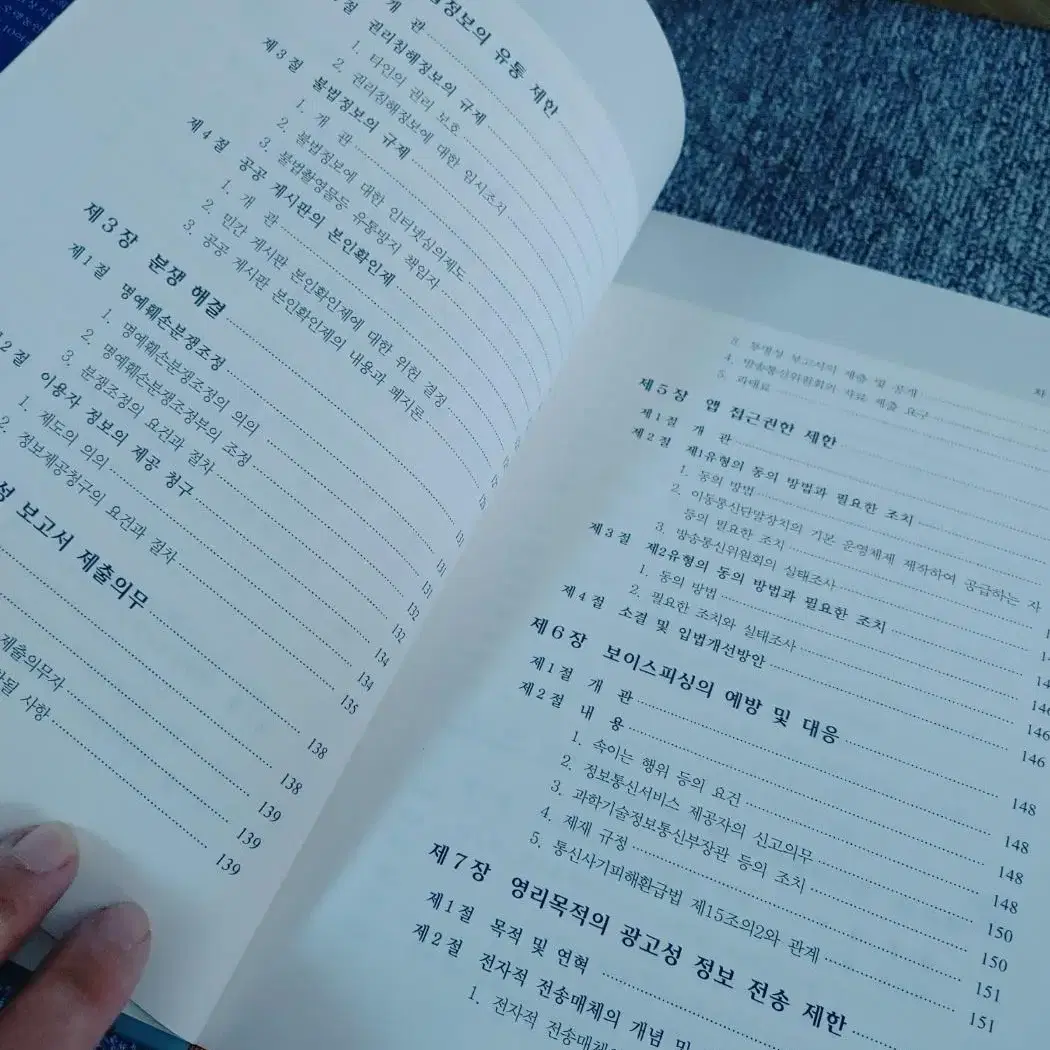 정보의 유통 제한
개 관
권리침해정보의 규제
1. 타인의 권리 보호
2. 권리침해정보에 대한 임시조치
제3절 불법정보의 규제
1. 개 관
2. 불법정보에 대한 인터넷심의제도
3. 불법촬영물등 유통방지 책임자
제4절 공공 게시판의 본인확인제
1. 개 관
2. 민간 게시판 본인확인제에 대한 위헌 결정
3. 공공 게시판 본인확인제의 내용과 폐지론
제3장 분쟁 해결
제1절 명예훼손분쟁조정
1. 명예훼손분쟁조정의 의의 131
2. 명예훼손분쟁조정부의 조정 131
3. 분쟁조정의 요건과 절차 132
2절 이용자 정보의 제공 청구 132
1. 제도의 의의 134
2. 정보제공청구의 요건과 절차 134
135
성 보고서 제출의무 138
138
139
제출의무자 139
될 사항 139
차
3. 투명성 보고서의 제출 및 공개
4. 방송통신위원회의 자료 제출 요구
5. 과태료
제5장 앱 접근권한 제한
제1절 개 관
제2절 제1유형의 동의 방법과 필요한 조치
1. 동의 방법
2. 이동통신단말장치의 기본 운영체제 제작하여 공급하는 자
등의 필요한 조치
3. 방송통신위원회의 실태조사
제3절 제2유형의 동의 방법과 필요한 조치
1. 동의 방법
2. 필요한 조치와 실태조사 146
제4절 소결 및 입법개선방안 146
146
제6장 보이스피싱의 예방 및 대응 148
제1절 개 관 148
제2절 내 용 148
1. 속이는 행위 등의 요건 148
2. 정보통신서비스 제공자의 신고의무 150
3. 과학기술정보통신부장관 등의 조치 150
4. 제재 규정 151
5. 통신사기피해환급법 제15조의2와 관계 151
제7장 영리목적의 광고성 정보 전송 제한
제1절 목적 및 연혁
제2절 전자적 전송매체의 개념 및
1. 전자적 전송매체의